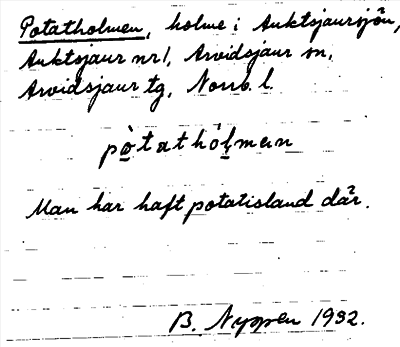 Potatholmen, holme i Auktsjaursjön,
Auktsjaur nr1, Arvidsjaur sn,
Arvidsjaur tg, Norrb. l.
pòtathólmen
Man har haft potatisland där.
B. Nyppen 1932.